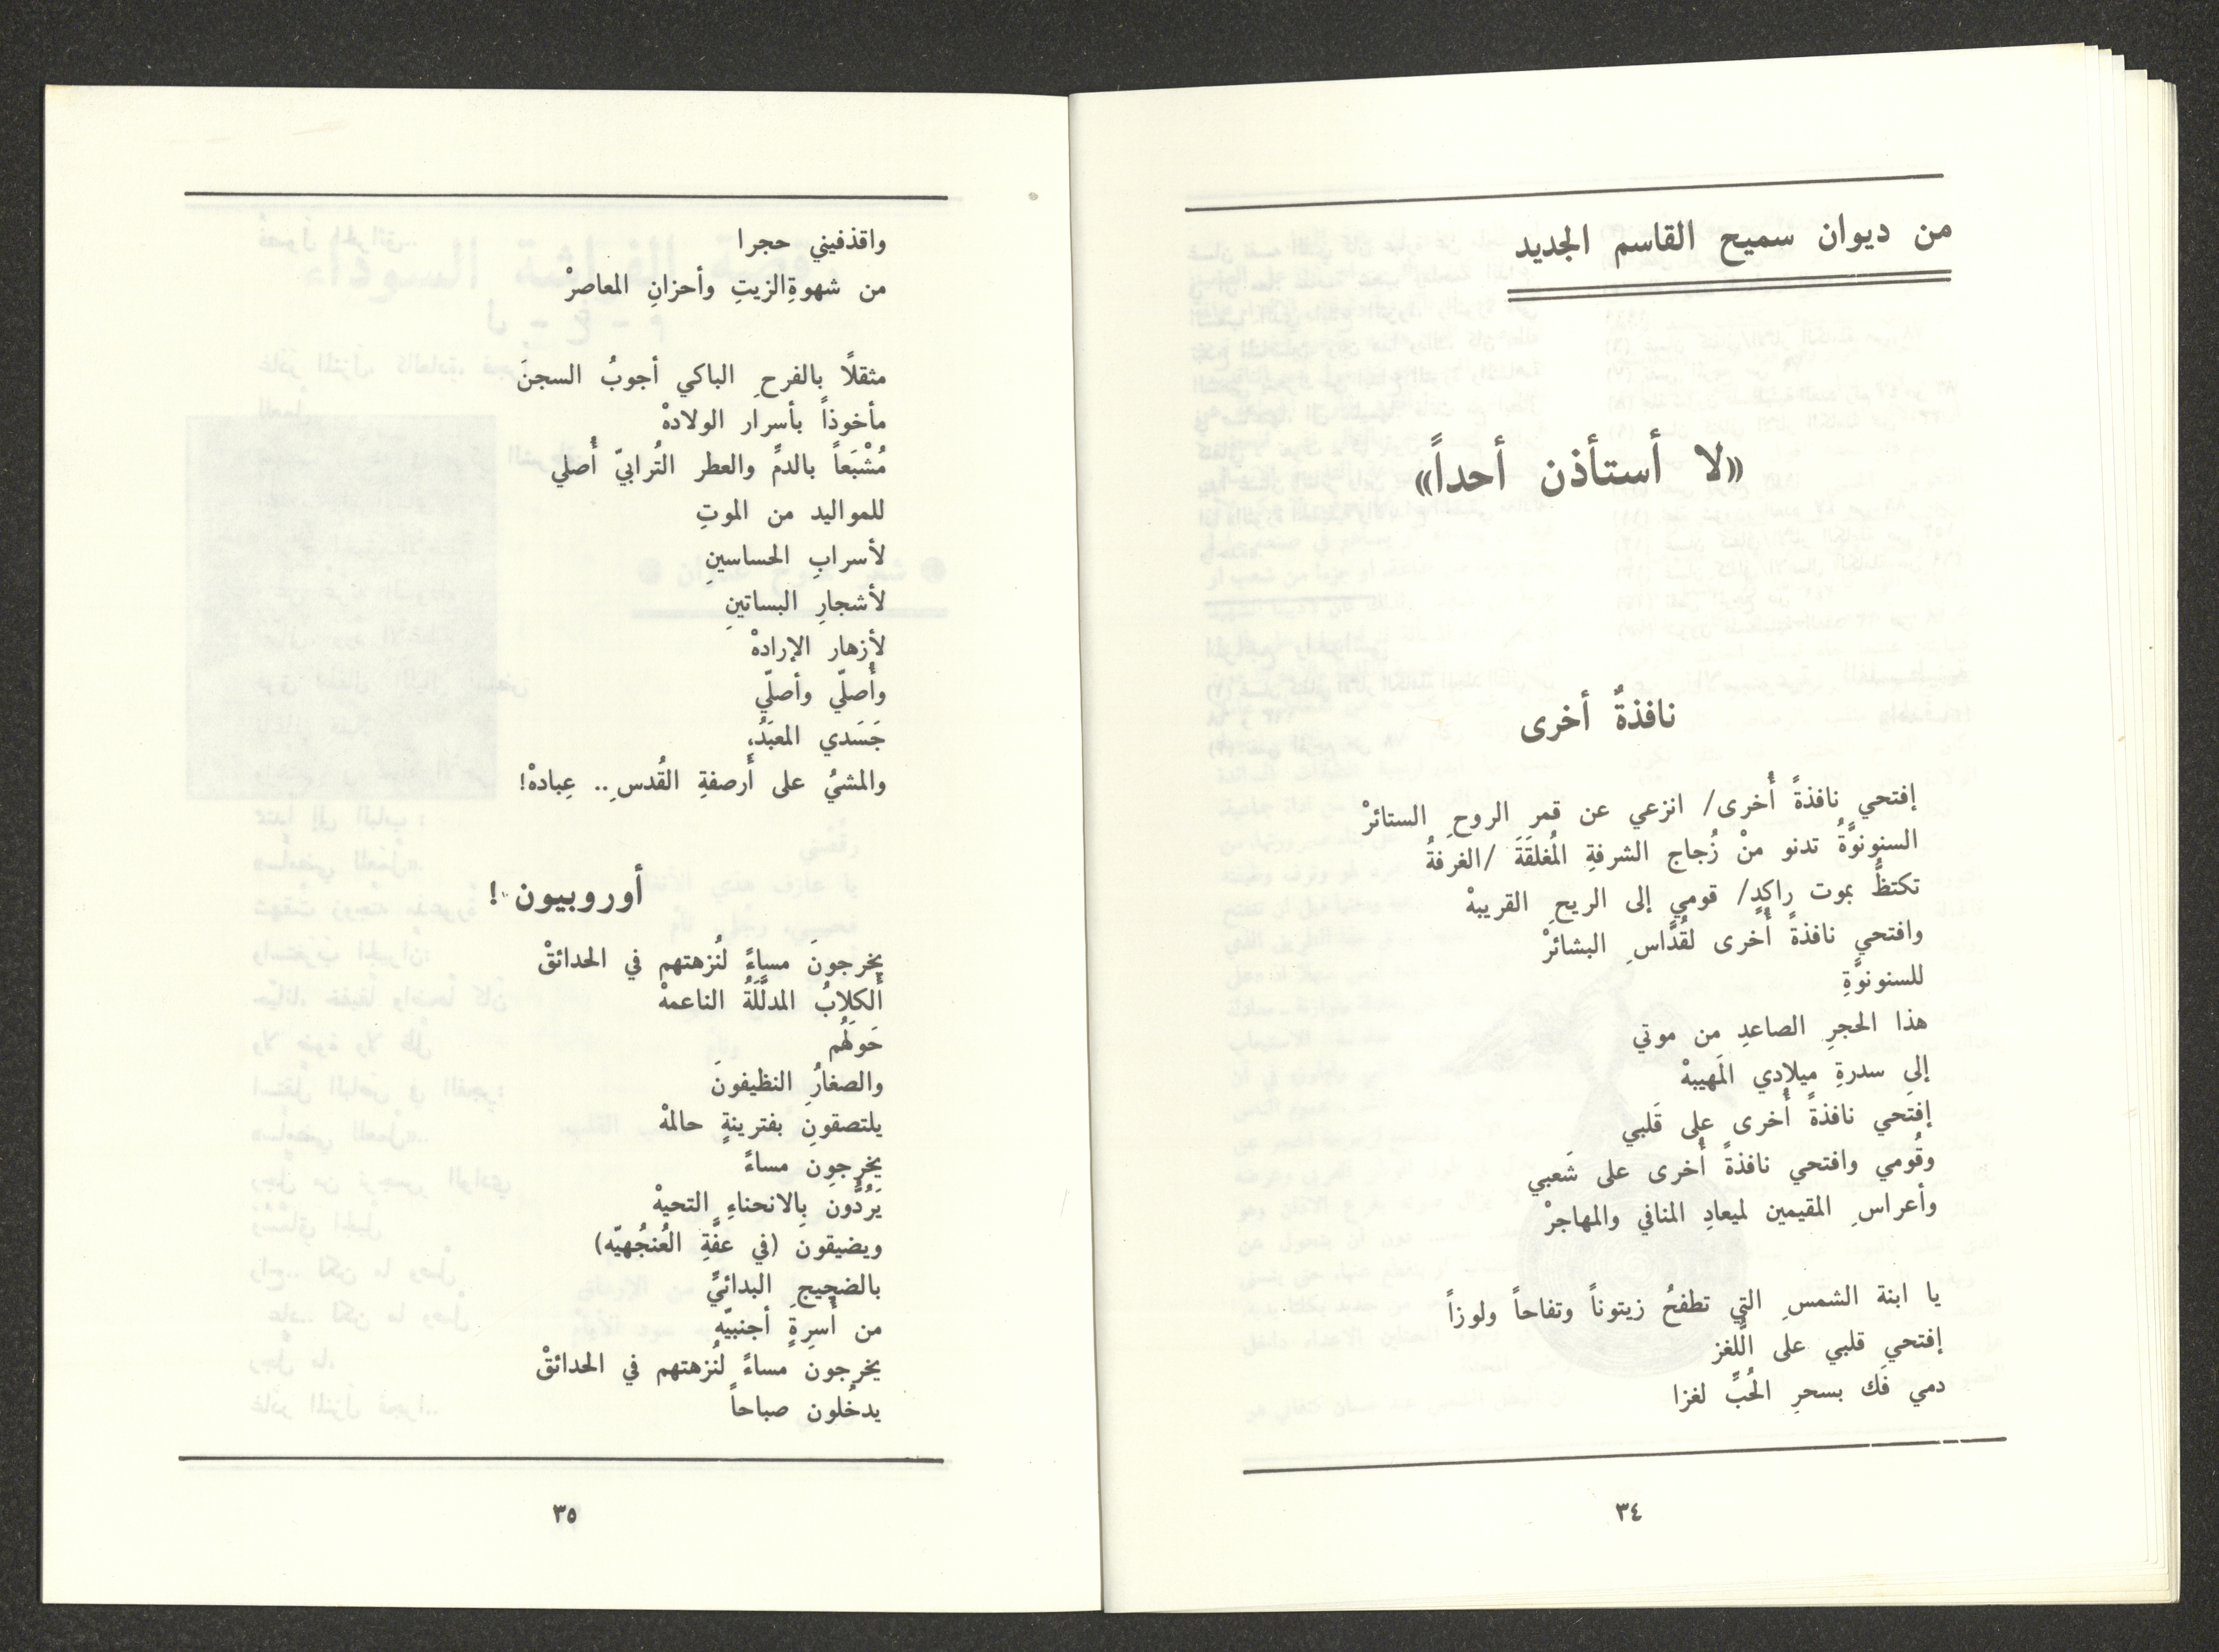 من ديوان سميح القاسم الجديد
«لا أستأذن أحداً»
نافذةٌ أخرى
إفتحي نافذةً أُخرى/ انزعي عن قمر الروحِ الستائرْ
السنونوَّةُ تدنو منْ زُجاج الشرفةِ المُغلقَةَ /الغرفةُ
تكتظُّ بموت راكدٍ/ قومي إلى الريحِ القريبهْ
وافتحي نافذةً أُخرى لقُدَّاسِ البشائرْ
للسنونوَّةِ
هذا الحجرِ الصاعدِ من موتي
إلى سدرةِ ميلادِي المَهيبهْ
إفتَحي نافذةً أُخرى على قَلبي
وقُومي وافتحي نافذةً أُخرى على شَعبي
وأعراسِ المقيمين لميعادِ المنافي والمهاجرْ
يا ابنة الشمسِ التي تطفحُ زيتوناً وتفاحاً ولوزاً
إفتحي قلبي على الُّلغز
دمي فَك بسحرِ الحُبِّ لغزا
٣٤
واقذفيني حجرا
من شهوةِالزيتِ وأحزانِ المعاصرْ
مثقلًا بالفرحِ الباكي أجوبُ السجنَ
مأخوذاً بأسرار الولادهْ
مُشْبَعاً بالدمِّ والعطر التُرابيّ أُصلي
للمواليد من الموتِ
لأسرابِ الحساسينِ
لأشجارِ البساتينِ
لأزهار الإرادهْ
وأُصلّي وأصلّي
جَسَدي المعبَدُ،
والمشيُ على أَرصفةِ القُدسِ.. عِبادهْ!
أوروبيون !
يخرجونَ مساءً لُنزهتهم في الحدائقْ
أَلكلابُ المدلَّلَةُ الناعمهْ
حَولَهُم
والصغارُ النظيفونَ
يلتصقونَ بفترينةٍ حالمهْ
يخرجون مساءً
يَرُدُّون بِالانحناءِ التحيهْ
ويضيقون (في عفَّةِ العُنجُهيّه)
بالضجيجِ البدائيِّ
من أَسرِةٍ أجنبيّهِ
يخرجون مساءً لُنزهتهم في الحدائقْ
يدخُلون صباحاً
٣٥